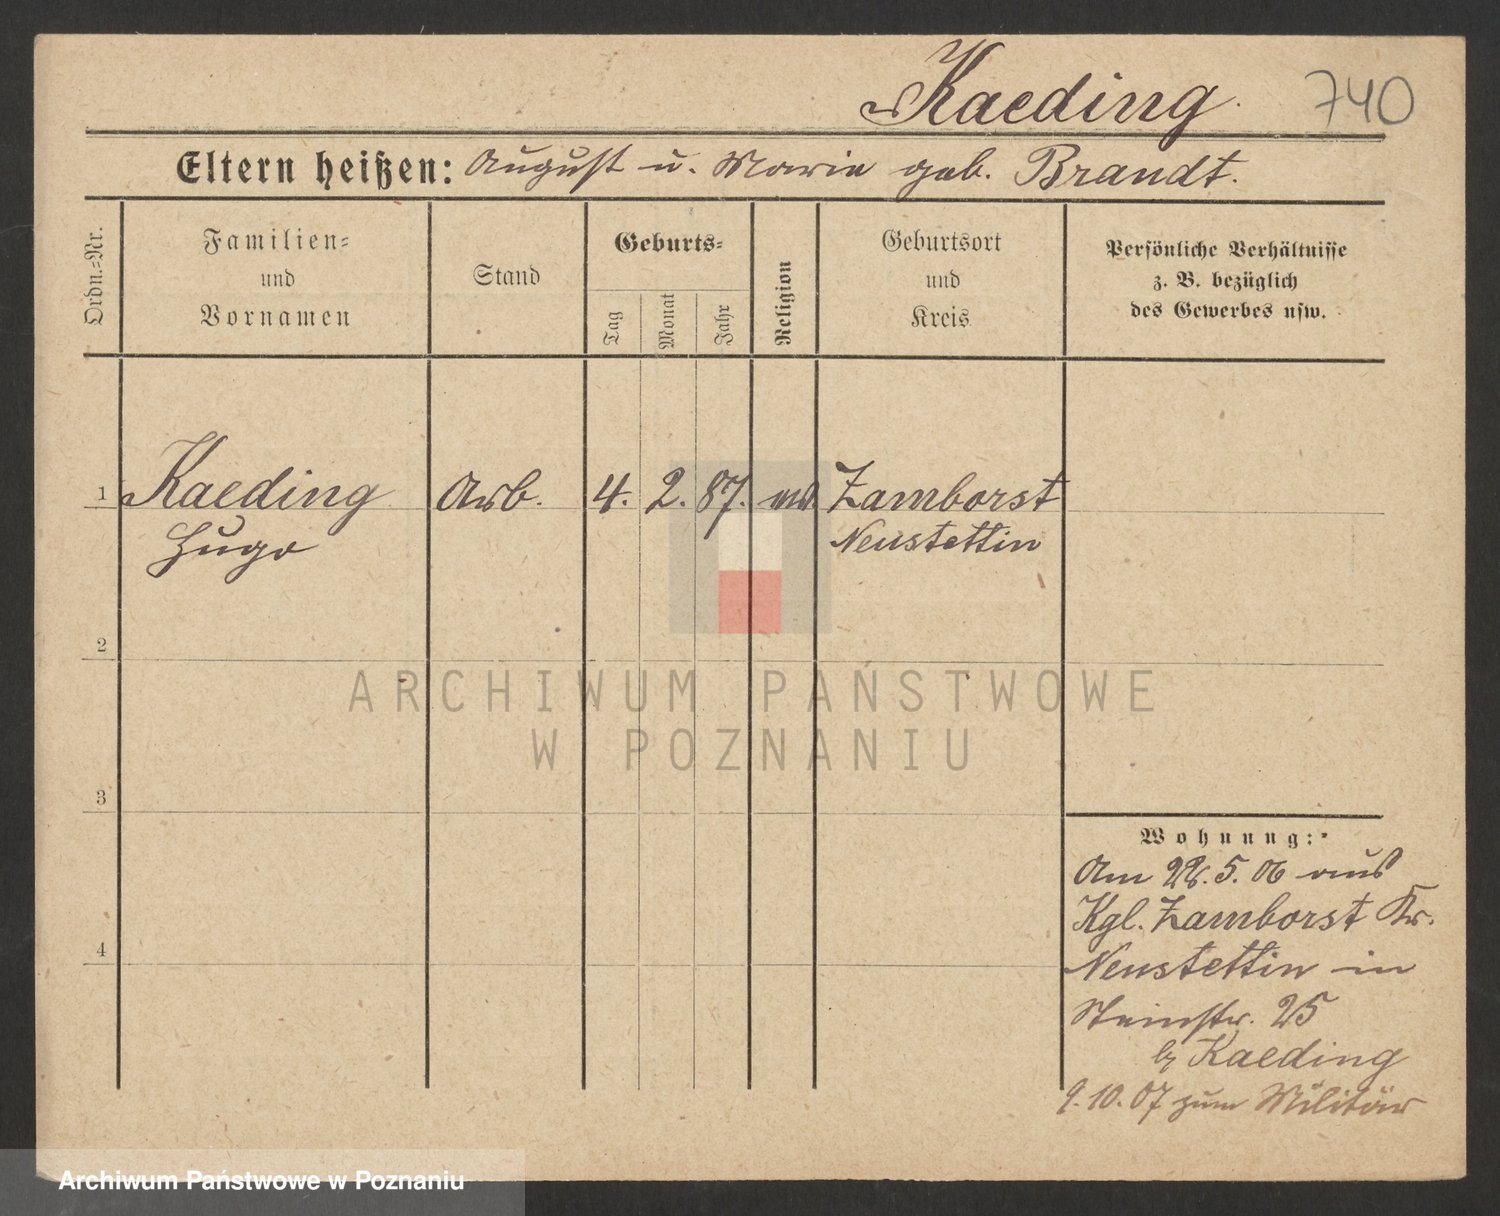 Kaeding. 740
Eltern heißen: August u. Marie geb. Brandt.
Ordn.=Nr.
Familien=
und
Vornamen
Stand
Geburts=
Tag
Monat
Jahr
Religion
Geburtsort
und
Kreis
Persönliche Verhältnisse
z. B. bezüglich
des Gewerbes usw.
1 Kaeding Arb. 4. 2. 87. Zamborst
Hugo Neustettin
2
3
4
Wohnung:
Am 22. 5. 06 aus
Kgl. Zamborst Kr.
Neustettin in
Steinstr. 25
b/ Kaeding
9. 10. 07 zum Militär
ARCHIWUM PAŃSTWOWE
W POZNANIU
Archiwum Państwowe w Poznaniu